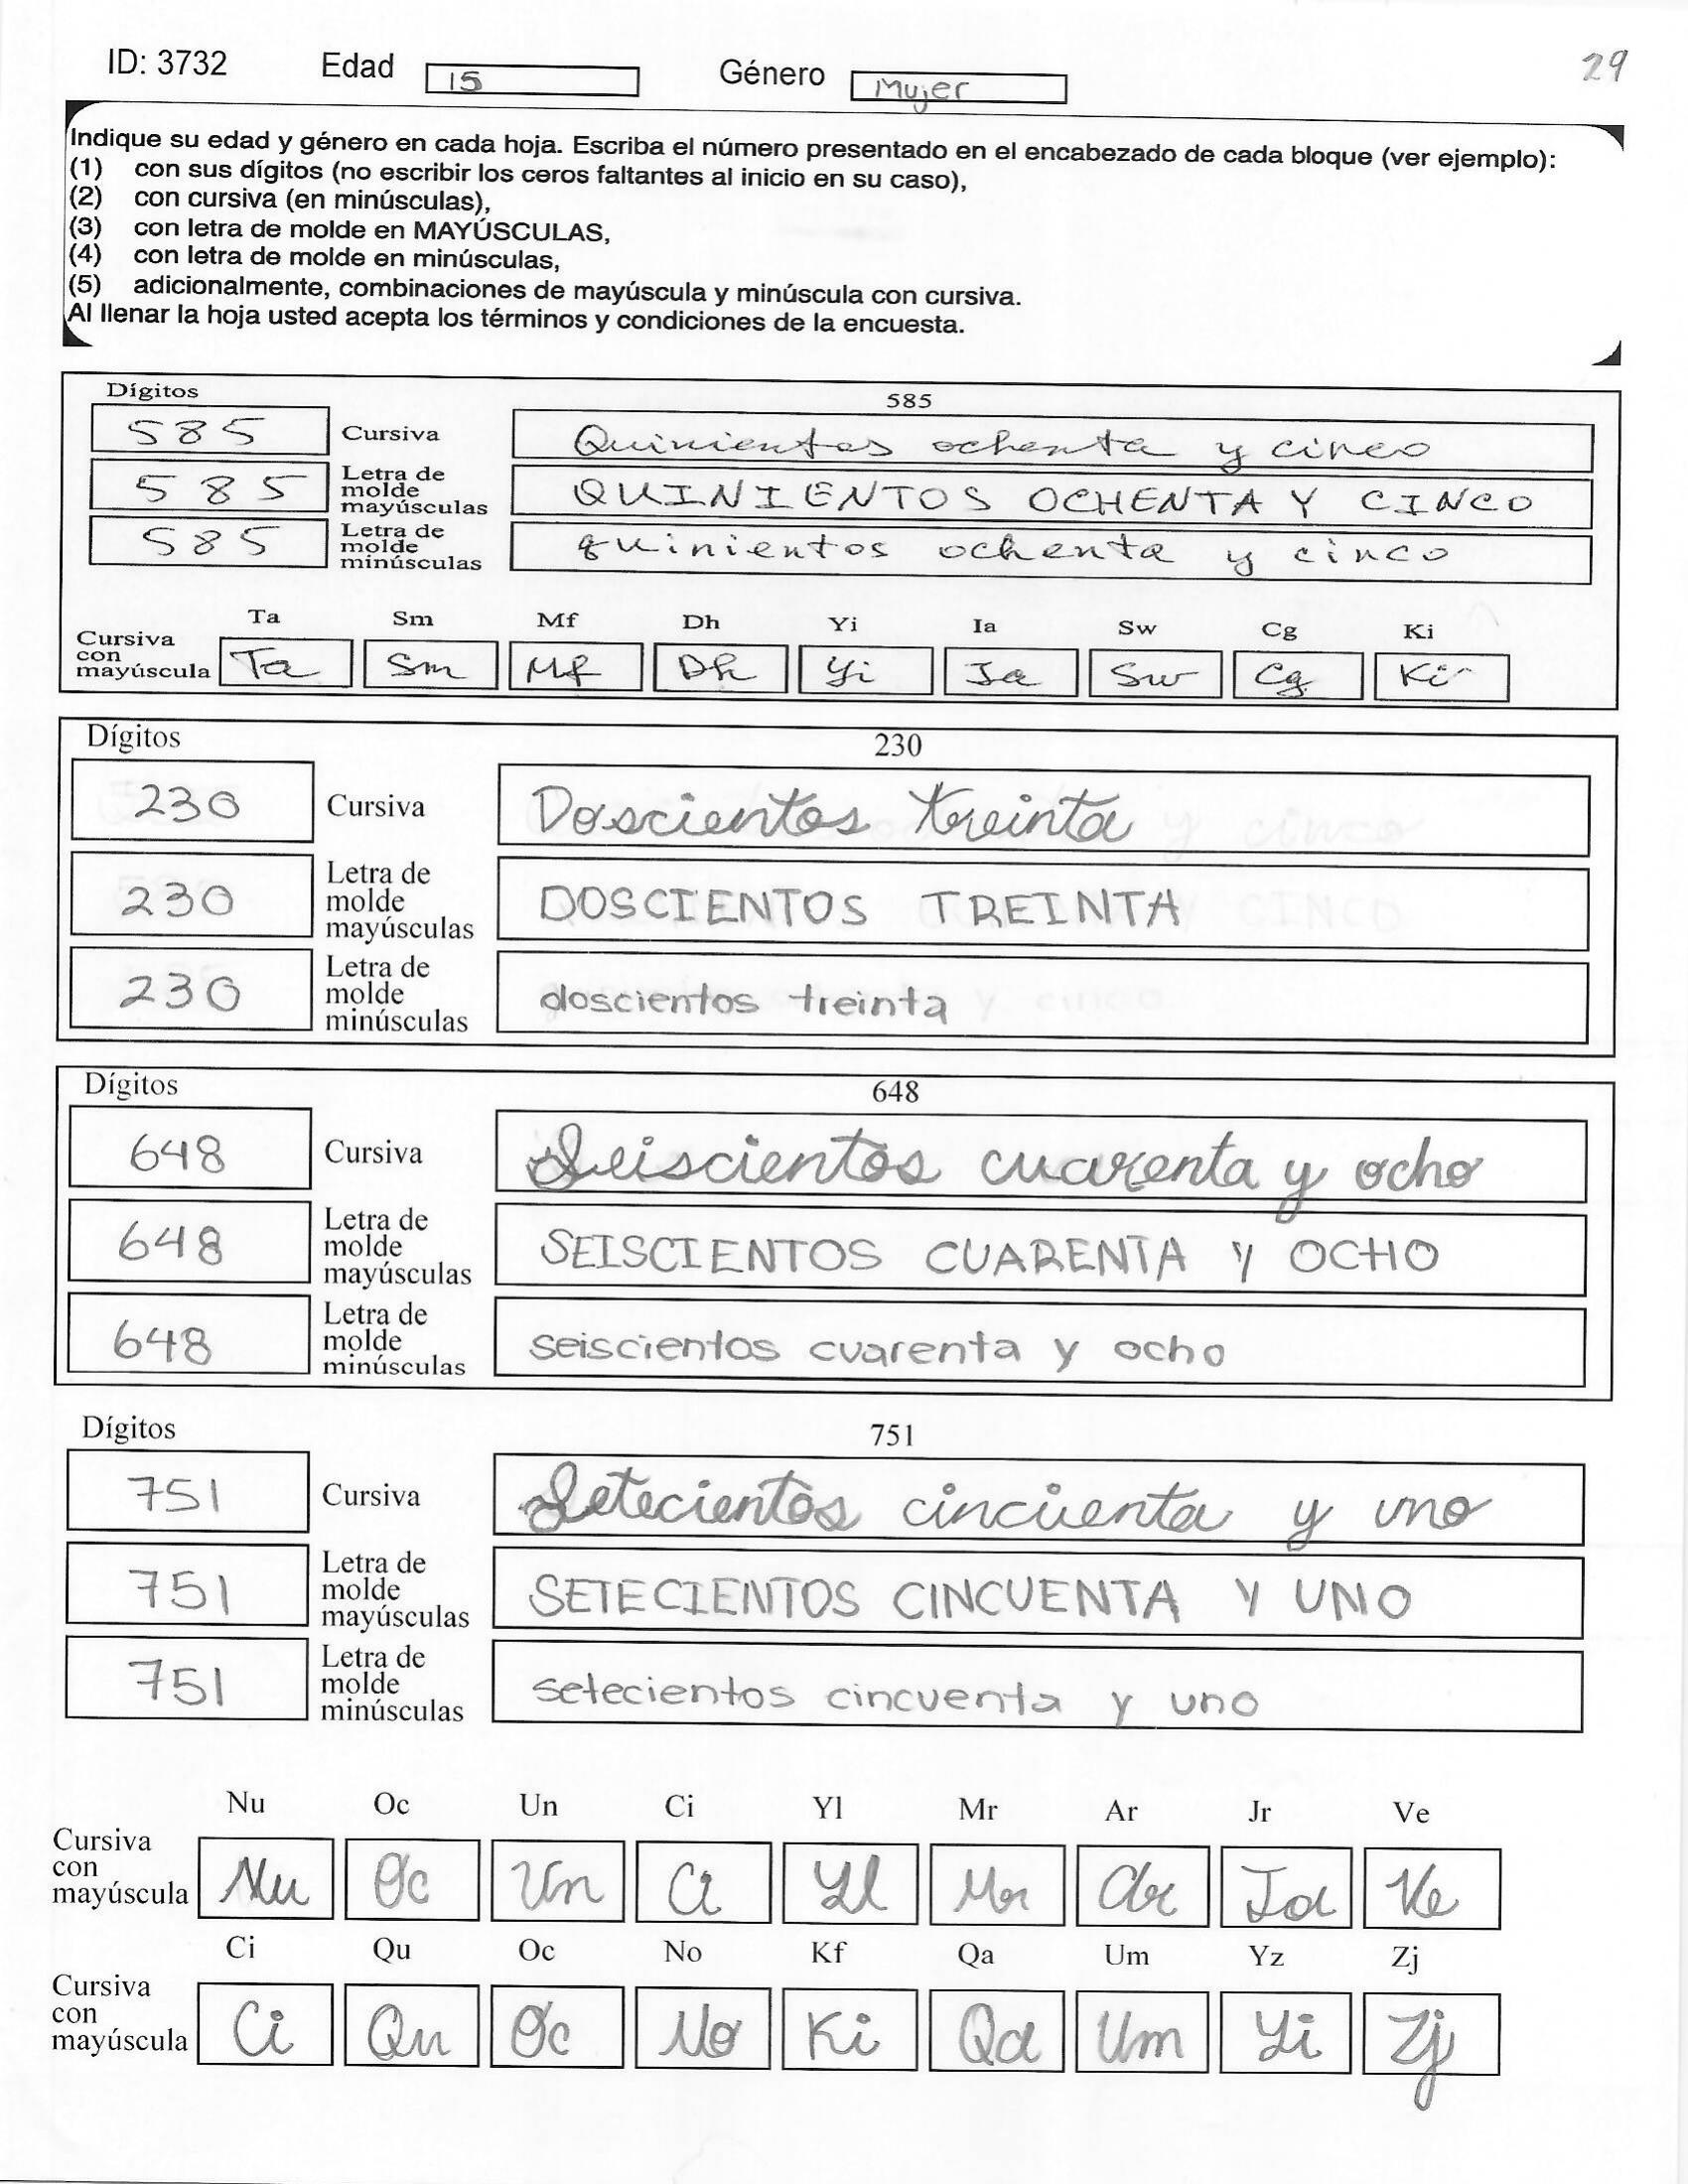 ID: 3732 Edad 15 Género Mujer 29
Indique su edad y género en cada hoja. Escriba el número presentado en el encabezado de cada bloque (ver ejemplo):
(1) con sus dígitos (no escribir los ceros faltantes al inicio en su caso),
(2) con cursiva (en minúsculas),
(3) con letra de molde en MAYÚSCULAS,
(4) con letra de molde en minúsculas,
(5) adicionalmente, combinaciones de mayúscula y minúscula con cursiva.
Al llenar la hoja usted acepta los términos y condiciones de la encuesta.
Dígitos 585
585 Cursiva Quinientos ochenta y cinco
585 Letra de molde mayúsculas QUINIENTOS OCHENTA Y CINCO
585 Letra de molde minúsculas quinientos ochenta y cinco
Ta Sm Mf Dh Yi Ia Sw Cg Ki
Cursiva con mayúscula Ta Sm Mf Dh Yi Ia Sw Cg Ki
Dígitos 230
230 Cursiva Doscientos treinta
230 Letra de molde mayúsculas DOSCIENTOS TREINTA
230 Letra de molde minúsculas doscientos treinta
Dígitos 648
648 Cursiva Seiscientos cuarenta y ocho
648 Letra de molde mayúsculas SEISCIENTOS CUARENTA Y OCHO
648 Letra de molde minúsculas seiscientos cuarenta y ocho
Dígitos 751
751 Cursiva Setecientos cincuenta y uno
751 Letra de molde mayúsculas SETECIENTOS CINCUENTA Y UNO
751 Letra de molde minúsculas setecientos cincuenta y uno
Nu Oc Un Ci Yl Mr Ar Jr Ve
Cursiva con mayúscula Nu Oc Un Ci Yl Mr Ar Ja Ve
Ci Qu Oc No Kf Qa Um Yz Zj
Cursiva con mayúscula Ci Qu Oc No Ki Qa Um Yi Zj